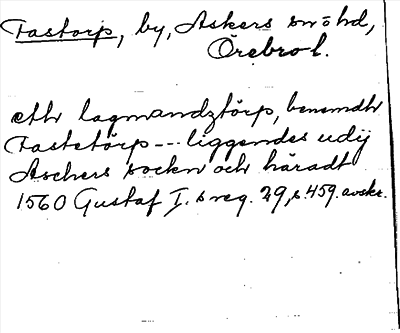 Tastorp, by, Askers sn o hd,
Örebro l.
ett lagmandztörp, benemdt
Tastetörp --- liggendes udij
Aschers sockn och häradt
1560 Gustaf I. s reg. 29, s. 459. avskr.